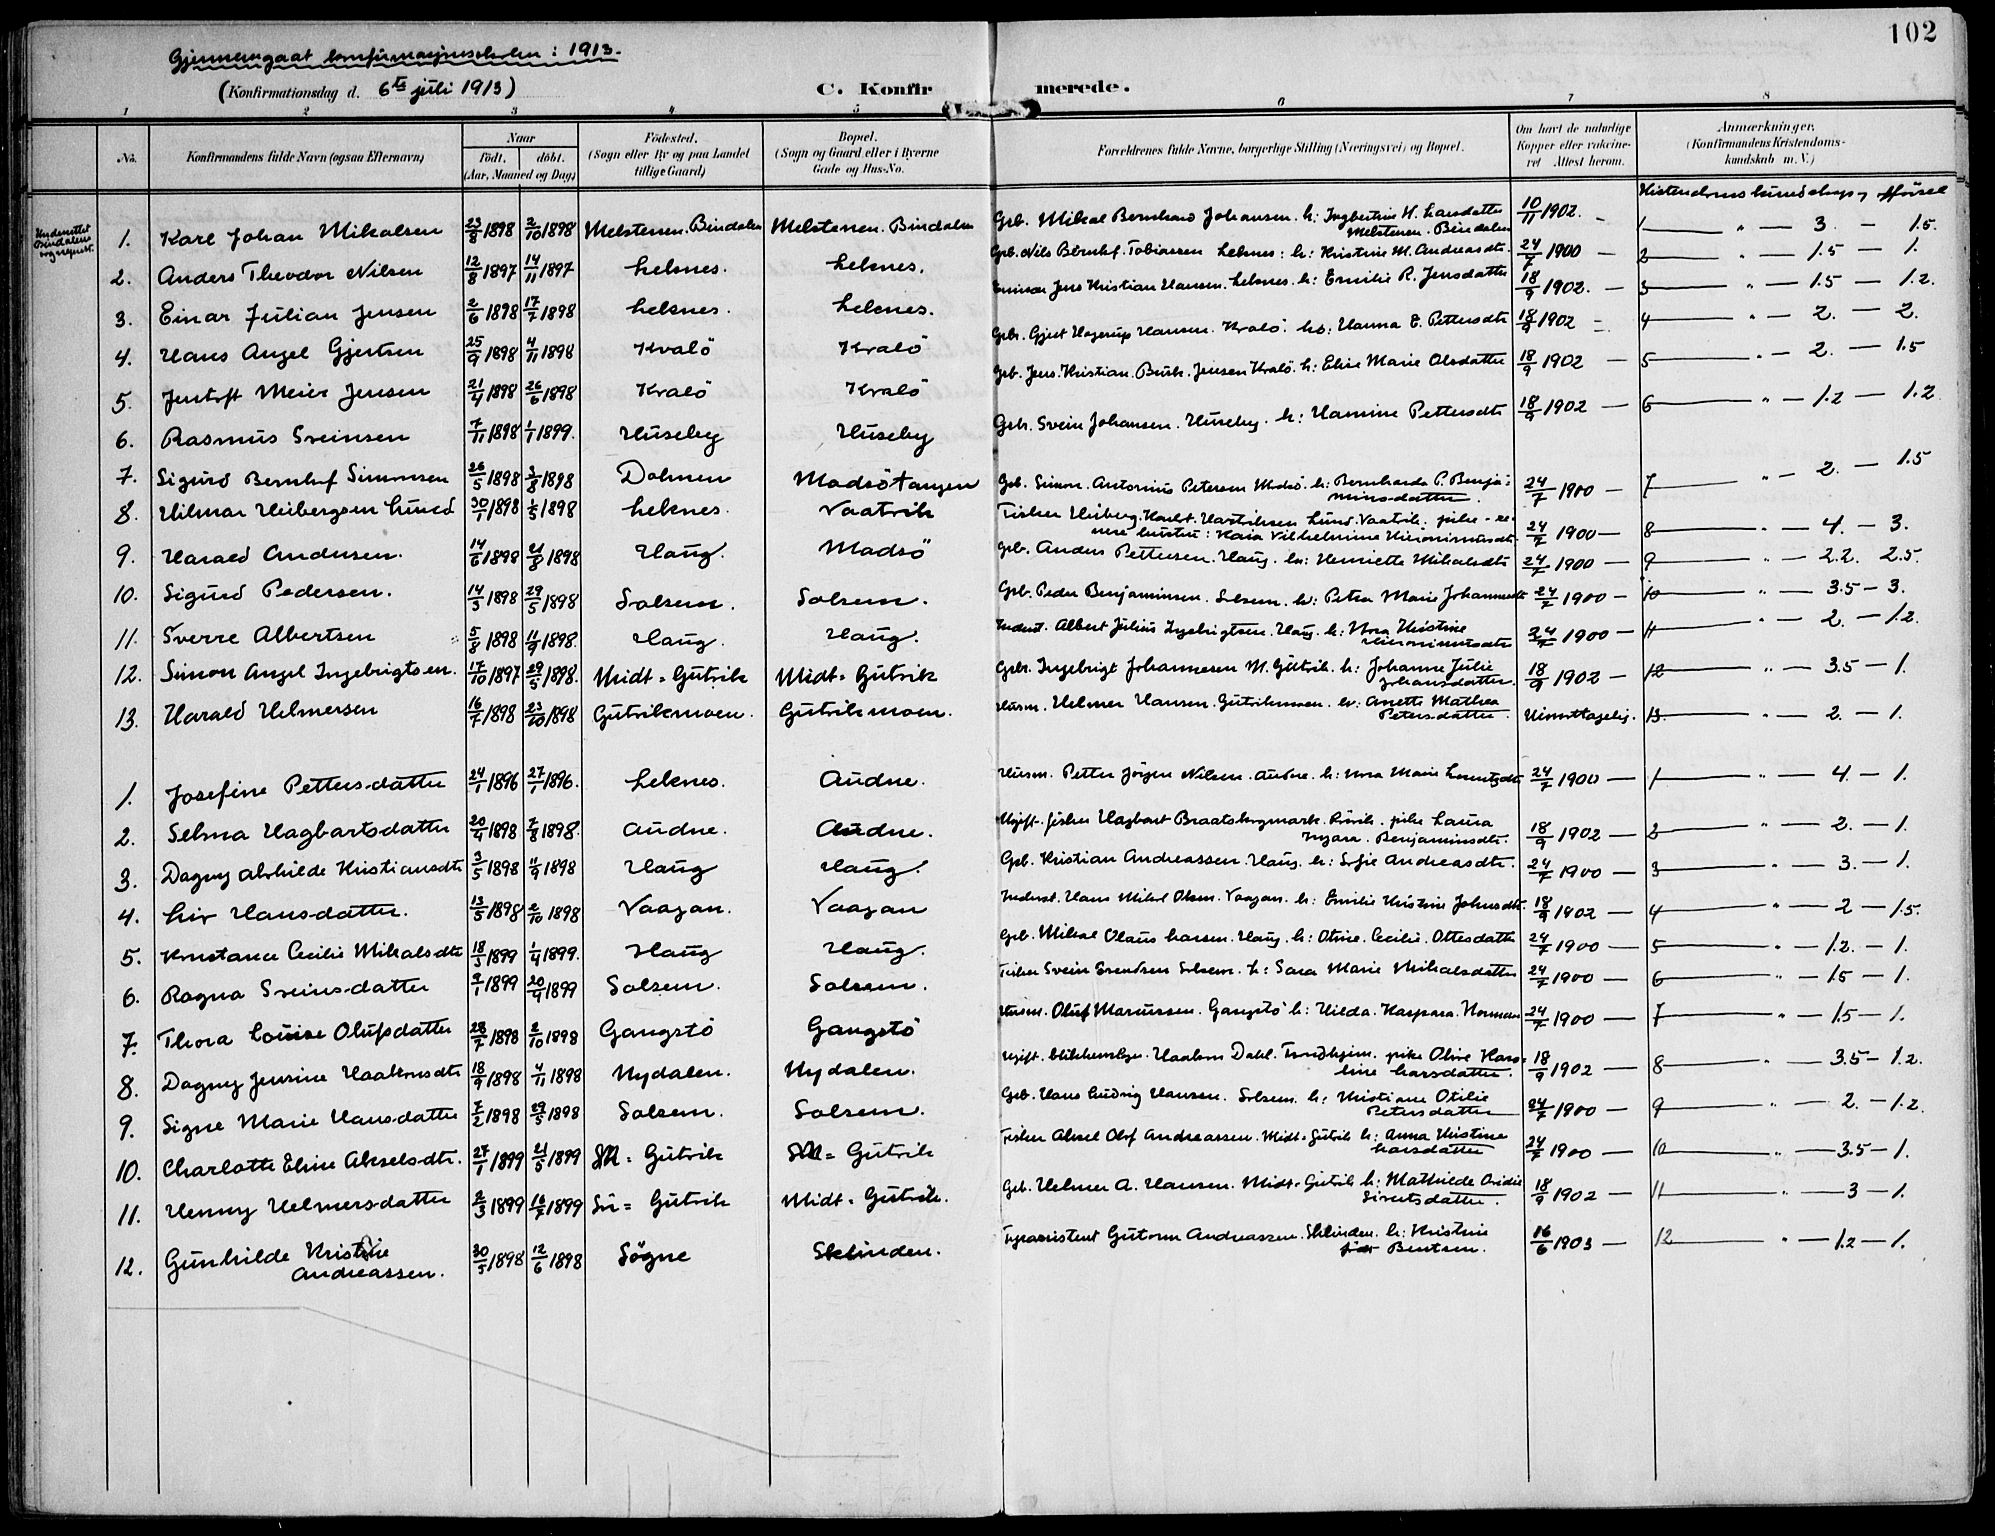 102
Gjennemgaat konfirmasjonsskolen: 1913.
(Konfirmationsdag d. 6te juli 1913)
C. Konfirmerede.
1 2 3 4 5 6 7 8
No.
Konfirmandens fulde Navn (ogsaa Efternavn)
Naar
født, døbt.
(Aar, Maaned og Dag)
Fødested.
(Sogn eller By og paa Landet
tillige Gaard)
Bopæl.
(Sogn og Gaard eller i Byerne
Gade og Hus-No.
Forældrenes fulde Navne, borgerlige Stilling (Næringsvei) og Bopæl.
Om havt de naturlige
Kopper eller vaccineret
Attest herom.
Anmærkninger.
(Konfirmandens Kristendoms-
kundskab m. V.)
Kristendomskundskap, opførsel
Undervist
Bindalens
1. Karl Johan Mikalsen 23/8 1898 2/10 1898 Melstenen. Bindalen Melstenen. Bindalen Grb. Mikal Bernhard Johansen. h: Ingbertine H. Larsdatter 10/11 1902. 1 " 3 – 1.5
Melstenen. Bindalen
2. Anders Theodor Nilsen 12/8 1897 14/11 1897 Leknes. Leknes. Grb. Nils Bernhof. Tobiassen Leknes: h: Kristine M. Andreasdt. 24/7 1900 – 2 " 1.5 – 1.
3. Einar Julian Jensen 2/6 1898 17/7 1898 Leknes. Leknes. Jens Kristian Hansen. Leknes. h: Emilie R. Jensdatter 18/9 1902. – 3 " 1.5 – 1.2
4. Hans Angel Gjertsen 25/9 1898 4/11 1898 Kvalö Kvalö Gbr. Gjert Hagerup Hansen. Kvalö. h: Hanna E. Pettersdt. 18/9 1902 4 " 2. – 2.
5. Jentoft Meier Jensen 21/4 1898 26/6 1898 Kvalö Kvalö Grb. Jens. Kristian. Jensen Kvalö. h: Elise Marie Olsdatter 18/9 1902 – 5 " 2. – 1.5
6. Rasmus Sveinsen 7/11 1898 1/1 1899. Huseby Huseby Grb. Svein Johansen. Huseby. h: Hamine Pettersdt. 18/9 1902 – 6 " 1.2 – 1.2
7. Sigurd Bernhof Simonsen 26/5 1898 3/8 1898 Dolmen Madsötangen Grb. Simon. Antonius Petersen Madsö. h: Bernharda P. Benja- 24/7 1900 – 7 " 2. – 1.5
minsdatter.
8. Hilmar Heibergsen Lund 30/1 1898 1/5 1898 Leknes. Vaatvik Fisker Heiberg. Lund. Vaatvik. 24/7 1900 – 8 " 4. – 3.
Vilhelmine Hieronimusdt.
9. Harald Andersen. 14/6 1898 21/8 1898 Haug. Madsö Grb. Anders Pettersen. Haug. h: Henriette Mikalsdt. 24/7 1900 – 9 " 2.2. 2.5.
10. Sigurd Pedersen. 14/3 1898 29/5 1898 Solsem. Solsem. Grb. Peder Benjaminsen. Solsem. h: Petra Marie Johannesdt. 24/7 1900 – 10 " 3.5 – 3.
11. Sverre Albertsen 5/8 1898 11/9 1898. Haug. Haug. Inderst. Albert Julius Ingebrigtsen. Haug. h: Nora Kristine 24/7 1900 – 11 " 2. – 1.2.
Hieronimusdatter
12. Simon Angel Ingebrigtsen. 17/10 1897 29/5 1898. Midt-Gutvik Midt-Gutvik Grb. Ingebrigt Johannesen M. Gutvik. h: Johanne Julie 18/9 1902 – 12 " 3.5 – 1.
Johansdatter
13. Harald Helmersen 16/7 1898 23/10 1898 Gutvikmoen. Gutvikmoen. Husm. Helmer Hansen. Gutvikmoen. h: Anette Mathea Uimottagelig. 13. " 2. – 1.
Petersdatter.
1. Josefine Pettersdatter 24/1 1896 27/1 1896. Leknes. Audne. Husm. Petter Jörgen Nilsen. Audne. h: Nora Marie Lorentsdt. 24/7 1900 – 1 " 4. – 1.
2. Selma Hagbartsdatter 20/4 1898 7/8 1898. Audne. Audne. Ugift. fisker Hagbart pike Laura 18/9 1902 – 2 " 2. – 1.
Benjaminsdt.
3. Dagny Alvhilde Kristiansdt. 3/5 1898 11/9 1898 Haug Haug. Grb. Kristian Andreassen. Haug. h: Sofie Andreasdt. 24/7 1900 – 3 " 3. – 1.
4. Liv Hansdatter. 13/5 1898 2/10 1898 Vaagan. Vaagan Inderst. Hans Mikal Olsen. Vaagan. h: Emilie Kristine Johnsdt. 18/9 1902 – 4 " 2 – 1.5.
5. Konstance Cecilie Mikalsdt. 18/3 1899 1/4 1899. Haug Haug. Grb. Mikal Olaus Larsen. Haug. h: Oline. Cecilie. Ottesdatter 24/7 1900 – 5 " 1.2. – 1.
6. Ragna Sveinsdatter 9/1 1899 20/4 1899 Solsem. Solsem. Fisker Svein Svendsen Solsem. h: Sara Marie Mikalsdatter 24/7 1900 – 6 " 1.5 – 1.
7. Thora Louise Olufsdatter 28/7 1898 2/10 1898 Gangstö Gangstö Husm. Oluf Mariussen. Gangstö h: Hilda. Kaspara. Norman 24/7 1900 – 7 " 1.5 – 1.
8. Dagny Jensine Haakonsdt. 18/9 1898 4/11 1898 Nydalen. Nydalen. Ugift. Haakon Dahl. Trondhjem. pike Oline Karo- 18/9 1902 – 8 " 3.5 – 1.2.
line Larsdatter.
9. Signe Marie Hansdatter 7/2 1898 29/5 1898 Solsem. Solsem. Grb. Hans Ludvig Hansen. Solsem. h: Kristiane Otilie 24/7 1900 – 9 " 2. – 1.2.
Petersdatter
10. Charlotte Eline Akselsdt. 27/1 1899 21/5 1899 M = Gutvik M = Gutvik Fisker Aksel Olof Andreassen. Midt-Gutvik h: Anna Kristine 24/7 1900 – 10 " 3.5 – 1.
Larsdatter
11. Henny Helmersdatter 2/3 1899 16/7 1899 = Gutvik Midt-Gutvik. Grb. Helmer A. Hansen. Midt-Gutvik h: Mathilde 18/9 1902 – 11 " 3 – 1.
Sivertsdatter.
12. Gunhilde Kristine 30/5 1898 12/6 1898 Sögne Sklinden. Fyrassistent Gutorm Andreassen. Sklinden. h: Kristine 16/6 1903 – 12 " 1.2 – 1.
Andreassen. Bentsen.